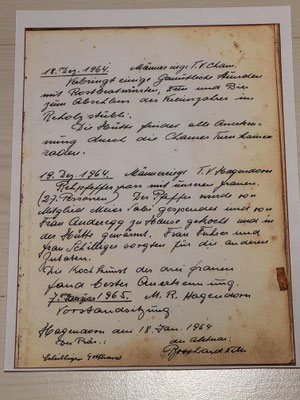 18. Dez. 1964. Männerriege T.V. Cham.
Verbringt einige gemütliche Stunden
mit Rostbratwürsten, Wein und Bier
zum Abschluss des Vereinsjahres im
Reholzstübli.
Die Hütte findet alle Anerken-
nung durch die Chamer Turnkamera-
raden.
19. Dez. 1964. Männerriege T.V. Hagendorn
Rehpfefferfrass mit unseren Frauen.
(27. Personen) Der Pfeffer wurde von
Mitglied Meier Sebi gespendet und von
Frau Anderegg zu Hause gekocht und in
der Hütte gewärmt. Frau Führer und
Frau Schilliger sorgten für die anderen
Zutaten.
Die Kochkunst der drei Frauen
fand bestes Anerkennung.
7. Januar 1965. M. R. Hagendorn
Vorstandsitzung
Hagendorn den 18. Jan. 1964
Der Präs.: der Aktuar:
Schilliger Gotthard